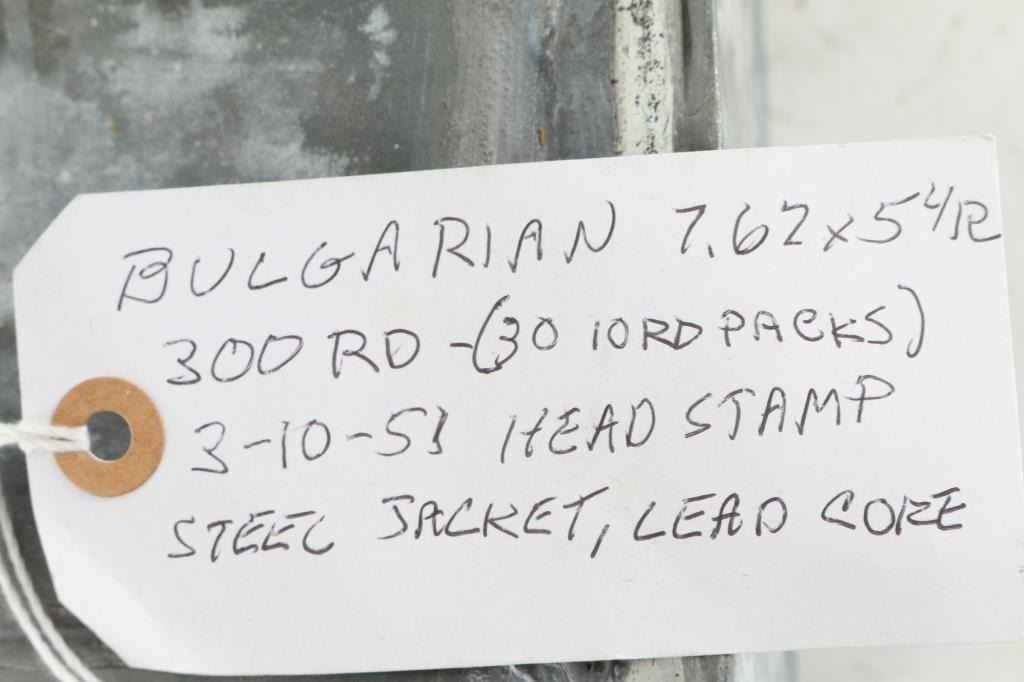 BULGARIAN 7.62x54R
300 RD -(30 10RD PACKS)
3-10-51 HEAD STAMP
STEEL JACKET, LEAD CORE